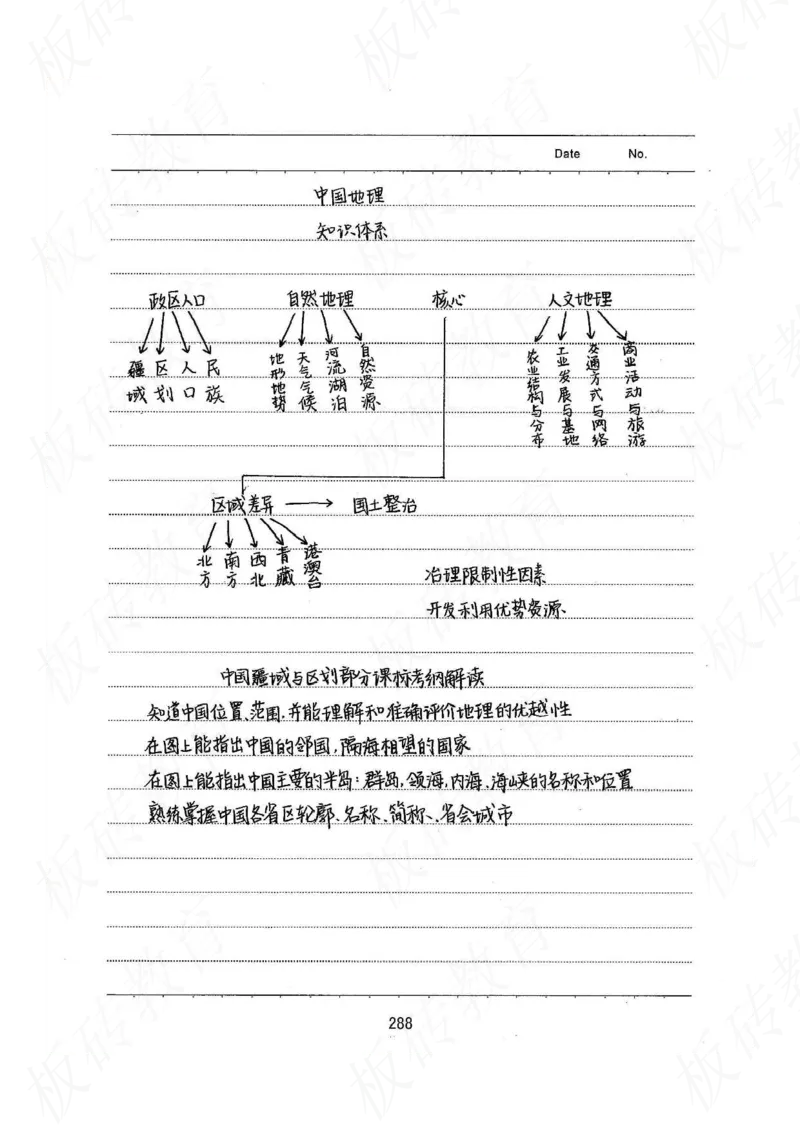 Date No.
中国地理
知识体系
政区人口 自然地理 核心 人文地理
疆域 区划 人口 民族
地形地势 天气气候 河流湖泊 自然资源
农业结构与分布 工业发展与基地 交通方式与网络 商业活动与旅游
区域差异 → 国土整治
北方 南方 西北 青藏 港澳台
治理限制性因素
开发利用优势资源
中国疆域与区划部分课标考纲解读
知道中国位置、范围,并能理解和准确评价地理的优越性
在图上能指出中国的邻国,隔海相望的国家
在图上能指出中国主要的半岛:群岛,领海,内海、海峡的名称和位置
熟练掌握中国各省区轮廓、名称、简称、省会城市
288
板砖教育